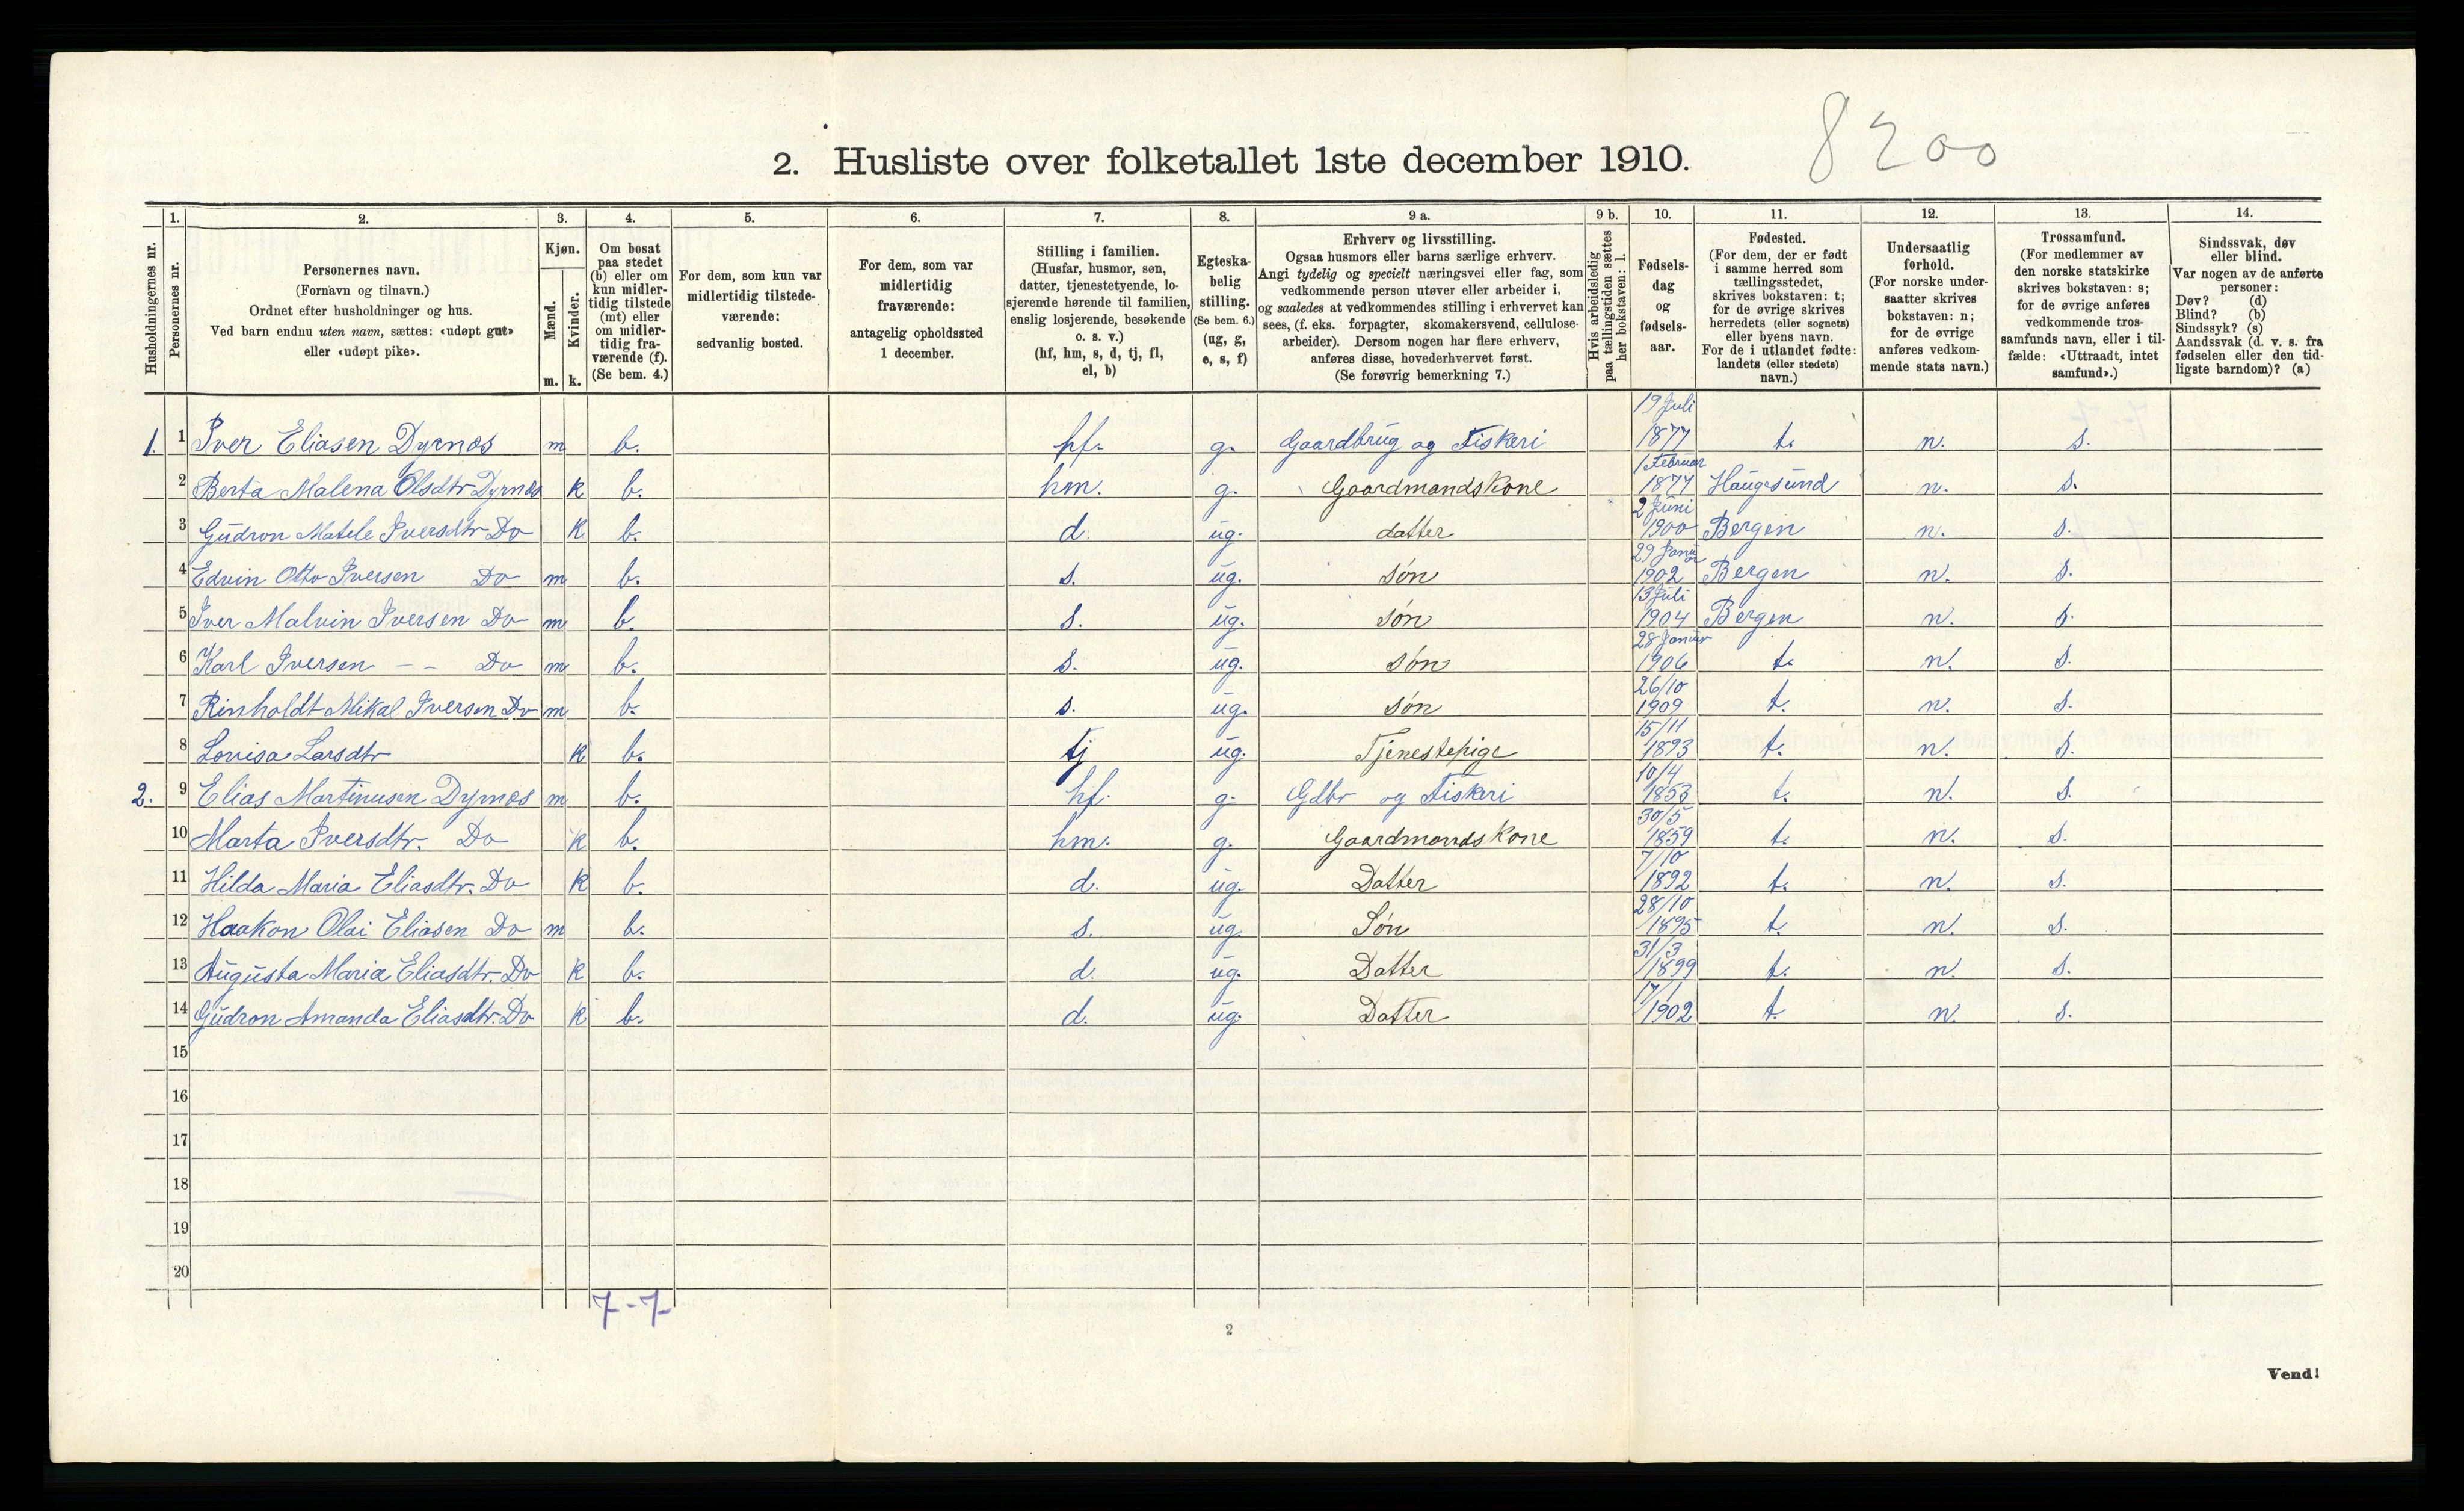 8200
2. Husliste over folketallet 1ste december 1910.
Husholdningernes nr.
1.
Personernes nr.
2.
Personernes navn.
(Fornavn og tilnavn.)
Ordnet efter husholdninger og hus.
Ved barn endnu uten navn, sættes: «udøpt gut»
eller «udøpt pike».
3.
Kjøn.
Mænd.
Kvinder.
m. k.
4.
Om bosat
paa stedet
(b) eller om
kun midler-
tidig tilstede
(mt) eller
om midler-
tidig fra-
værende (f).
(Se bem. 4.)
5.
For dem, som kun var
midlertidig tilstede-
værende:
sedvanlig bosted.
6.
For dem, som var
midlertidig
fraværende:
antagelig opholdssted
1 december.
7.
Stilling i familien.
(Husfar, husmor, søn,
datter, tjenestetyende, lo-
sjerende hørende til familien,
enslig losjerende, besøkende
o. s. v.)
(hf, hm, s, d, tj, fl,
el, b)
8.
Egteska-
belig
stilling.
(Se bem. 6.)
(ug, g,
e, s, f)
9 a.
Erhverv og livsstilling.
Ogsaa husmors eller barns særlige erhverv.
Angi tydelig og specielt næringsvei eller fag, som
vedkommende person utøver eller arbeider i,
og saaledes at vedkommendes stilling i erhvervet kan
sees, (f. eks. forpagter, skomakersvend, cellulose-
arbeider). Dersom nogen har flere erhverv,
anføres disse, hovederhvervet først.
(Se forøvrig bemerkning 7.)
9 b.
Hvis arbeidsledig
paa tællingstiden sættes
her bokstaven: l.
10.
Fødsels-
dag
og
fødsels-
aar.
11.
Fødested.
(For dem, der er født
i samme herred som
tællingsstedet,
skrives bokstaven: t;
for de øvrige skrives
herredets (eller sognets)
eller byens navn.
For de i utlandet fødte:
landets (eller stedets)
navn.)
12.
Undersaatlig
forhold.
(For norske under-
saatter skrives
bokstaven: n;
for de øvrige
anføres vedkom-
mende stats navn.)
13.
Trossamfund.
(For medlemmer av
den norske statskirke
skrives bokstaven: s;
for de øvrige anføres
vedkommende tros-
samfunds navn, eller i til-
fælde: «Uttraadt, intet
samfund».)
14.
Sindssvak, døv
eller blind.
Var nogen av de anførte
personer:
Døv? (d)
Blind? (b)
Sindssyk? (s)
Aandssvak (d. v. s. fra
fødselen eller den tid-
ligste barndom)? (a)
1. 1 Iver Eliasen Dyrnæs m b. hf. g. Gaardbrug og Fiskeri 19 Juli 1877 t. n. s.
2 Berta Malena Olsdtr Dyrnæs k b. hm. g. Gaardmandskone 1 Februar 1877 Haugesund n. s.
3 Gudron Matele Iversdtr Do k b. d. ug. datter 2 Juni 1900 Bergen n. s.
4 Edvin Otto Iversen Do m b. s. ug. søn 29 Januar 1902 Bergen n. s.
5 Iver Malvin Iversen Do m b. s. ug. søn 13 Juli 1904 Bergen n. s.
6 Karl Iversen – – Do m b. s. ug. søn 28 Januar 1906 t. n. s.
7 Rinholdt Mikal Iversen Do m b. s. ug. søn 26/10 1909 t. n. s.
8 Lovisa Larsdtr k b. tj ug. Tjenestepige 15/11 1893 t. n. s.
2. 9 Elias Martinusen Dyrnæs m b. hf. g. Gdbr og Fiskeri 10/4 1853 t. n. s.
10 Marta Iversdtr. Do k b. hm. g. Gaardmandskone 30/5 1859 t. n. s.
11 Hilda Maria Eliasdtr. Do k b. d. ug. Datter 7/10 1892 t. n. s.
12 Haakon Olai Eliasen Do m b. s. ug. Søn 28/10 1895 t. n. s.
13 Augusta Maria Eliasdtr. Do k b. d. ug. Datter 31/3 1899 t. n. s.
14 Gudron Amanda Eliasdtr. Do k b. d. ug. Datter 17/1 1902 t. n. s.
15
16
17
18
19
20
7-7
2
Vend!